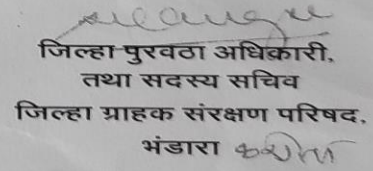 जिल्हा पुरवठा अधिकारी,
तथा सदस्य सचिव
जिल्हा ग्राहक संरक्षण परिषद,
भंडारा